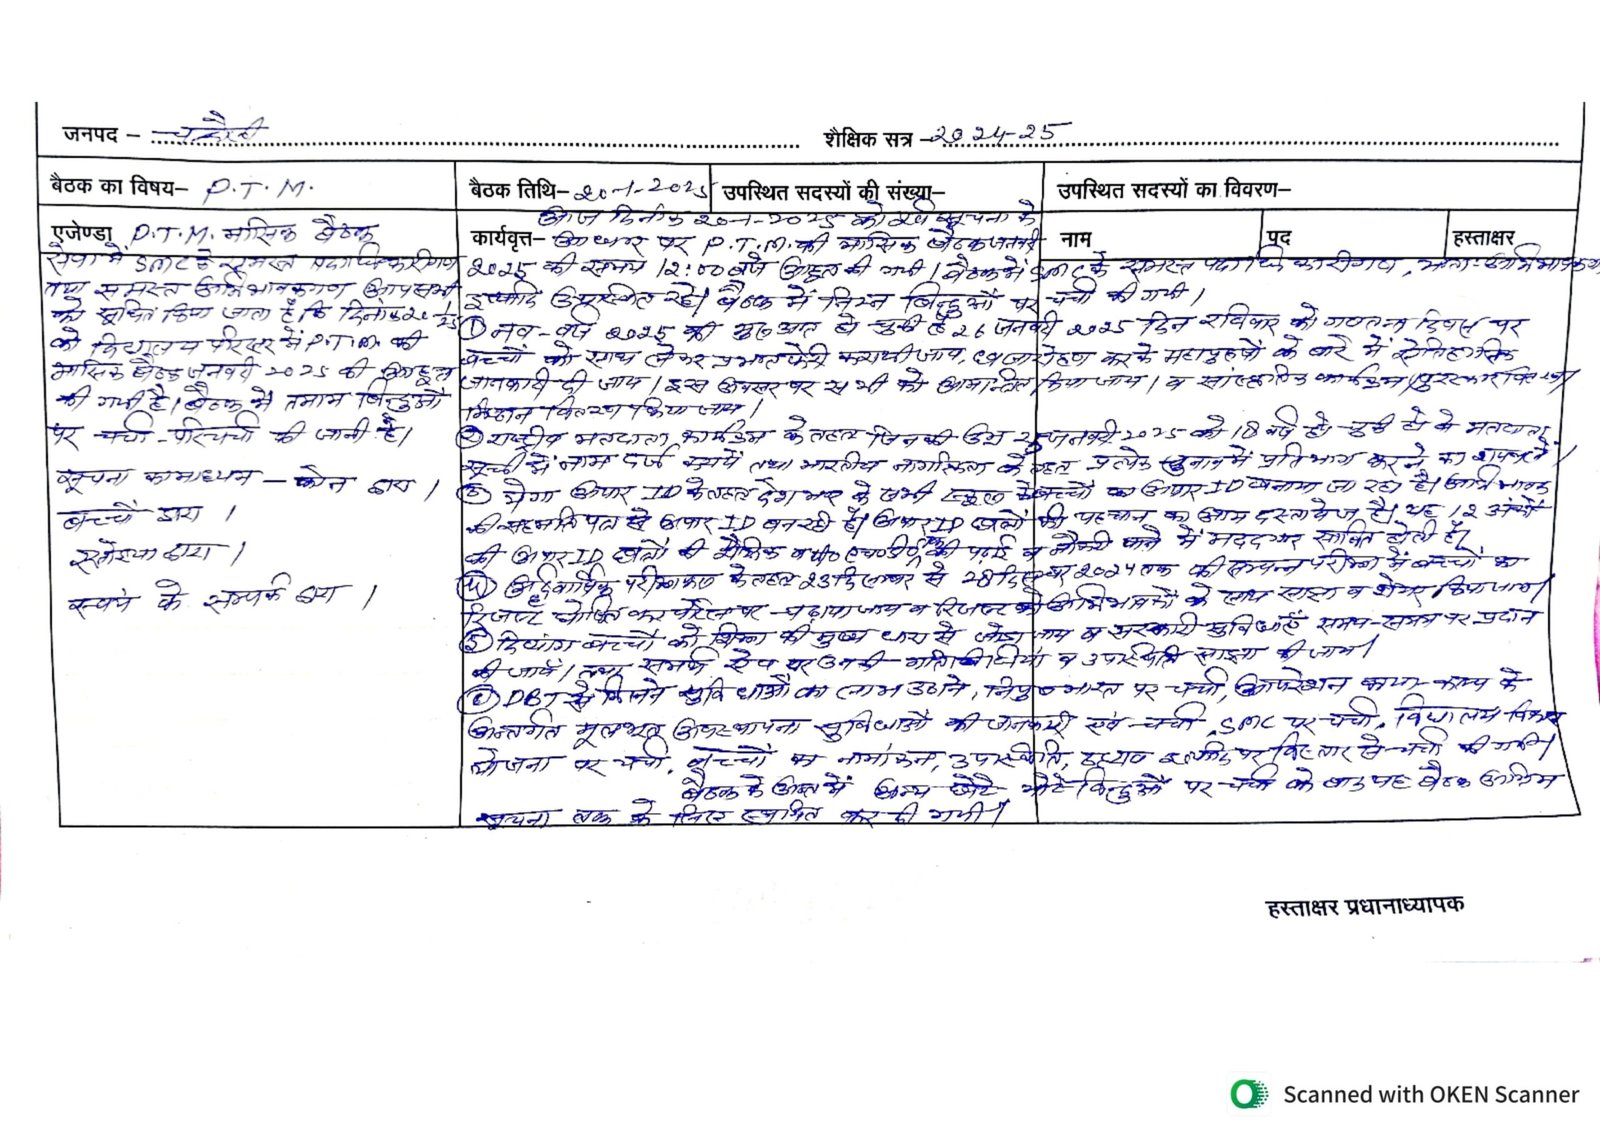 जनपद – चन्दौली
शैक्षिक सत्र – 2024-25
बैठक का विषय– P.T.M.
बैठक तिथि– 20-1-2025
उपस्थित सदस्यों की संख्या–
उपस्थित सदस्यों का विवरण–
एजेण्डा P.T.M. मासिक बैठक
सेवा में SMC के समस्त पदाधिकारीगण
तथा समस्त अभिभावकगण आप सभी
को सूचित किया जाता है कि दिनांक 20/1/25
को विद्यालय परिसर में P.T.M. की
मासिक बैठक जनवरी 2025 की आहूत
की गयी है। बैठक में तमाम बिन्दुओं
पर चर्चा-परिचर्चा की जानी है।
सूचना का माध्यम – फोन द्वारा।
बच्चों द्वारा।
रसोइया द्वारा।
स्वयं के सम्पर्क द्वारा।
नाम
पद
हस्ताक्षर
आज दिनांक 20-1-2025 को पूर्व सूचना के
कार्यवृत्त– आधार पर P.T.M. की मासिक बैठक जनवरी
2025 की समय 12:00 बजे आहूत की गयी। बैठक में SMC के समस्त पदाधिकारीगण, माता-अभिभावकगण
इत्यादि उपस्थित रहे। बैठक में निम्न बिन्दुओं पर चर्चा की गयी।
① नव-वर्ष 2025 की शुरुआत हो चुकी है 26 जनवरी 2025 दिन रविवार को गणतन्त्र दिवस पर
बच्चों को साथ लेकर प्रभातफेरी करायी जाय, ध्वजारोहण करके महापुरुषों के बारे में ऐतिहासिक
जानकारी दी जाय। इस अवसर पर सभी को आमंत्रित किया जाय। व सांस्कृतिक कार्यक्रम/पुरस्कार वितरण/
मिष्ठान वितरण किया जाय।
② राष्ट्रीय मतदाता कार्यक्रम के तहत जिनकी उम्र जनवरी 2025 को 18 वर्ष हो चुकी हो वे मतदाता
सूची में नाम दर्ज करायें तथा भारतीय नागरिकता के तहत प्रत्येक चुनाव में प्रतिभाग करने का शपथ लें।
③ मेगा अपार ID के तहत देश भर के सभी स्कूल के बच्चों का अपार ID बनाया जा रहा है। अभिभावक
की सहमति पत्र से अपार ID बन रही है। अपार ID छात्रों की पहचान का आम दस्तावेज है। यह 12 अंकों
की अपार ID छात्रों की शैक्षिक व पी०एच०डी० की पढ़ाई व नौकरी पाने में मददगार साबित होती है।
④ अर्द्धवार्षिक परीक्षाफल के तहत 23 दिसम्बर से 28 दिसम्बर 2024 तक की सम्पन्न परीक्षा में बच्चों का
रिजल्ट घोषित कर पोर्टल पर चढ़ाया जाय व रिजल्ट को अभिभावकों के साथ साझा व शेयर किया जाय।
⑤ दिव्यांग बच्चों को शिक्षा की मुख्य धारा से जोड़ा जाय व सरकारी सुविधाएँ समय-समय पर प्रदान
की जायें। तथा समर्थ ऐप पर उनकी गतिविधियां व उपस्थिति साझा की जाय।
⑥ DBT से मिलने सुविधाओं का लाभ उठाने, निपुण भारत पर चर्चा, ऑपरेशन काया-कल्प के
अन्तर्गत मूलभूत अवस्थापना सुविधाओं की जानकारी एवं चर्चा, SMC पर चर्चा, विद्यालय विकास
योजना पर चर्चा, बच्चों का नामांकन, उपस्थिति, ठहराव इत्यादि पर विस्तार से चर्चा की गयी।
बैठक के अन्त में अन्य छोटे मोटे बिन्दुओं पर चर्चा के बाद यह बैठक अग्रिम
सूचना तक के लिए स्थगित कर दी गयी।
हस्ताक्षर प्रधानाध्यापक
Scanned with OKEN Scanner